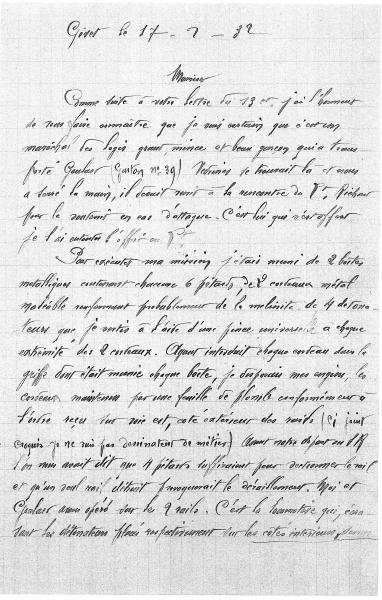 Givet le 17 - 2 - 32
Monsieur
Comme suite à votre lettre du 13 ct, j'ai l'honneur
de vous faire connaître que je suis certain que c'est un
maréchal des logis grand mince et beau garçon qui a transporté
Gaulart (Gaston n° 39) se trouvait là et nous
a serré la main, il devait venir à la rencontre du
pour le soutenir en cas d'attaque. C'est lui qui
je l'ai entendu
Pour exécuter ma mission j'étais muni de 2 boîtes
métalliques contenant chacune 6 pétards, de 2 cordeaux métal
maléable renfermant probablement de la mélinite, de 4 détona-
teurs que je sertis à l'aide d'une pince universelle à chaque
extrémité des 2 cordeaux. Ayant introduit chaque cordeau dans la
griffe dont était munie chaque boîte, je disposais mes engins, les
cordeaux maintenus par une feuille de plomb conformément à
l'ordre reçu sur rail est, coté extérieur des rails (ci joint
croquis je ne suis pas dessinateur de métier) Avant notre départ
l'on nous avait dit que 4 pétards suffiraient pour sectionner le rail
et qu'un seul rail détruit provoquerait le déraillement. Moi et
Gaulart avons opéré sur les 2 rails. C'est la locomotive qui, écra-
sant les détonateurs placés respectivement sur les côtés intérieurs